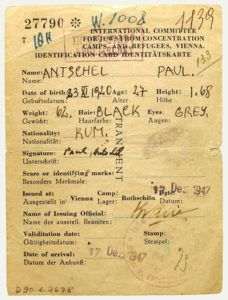 27790 * W.1008 1139
T
INTERNATIONAL COMMITTEE
FOR JEW. FROM CONCENTRATION
CAMPS AND REFUGEES, VIENNA.
IDENTIFICATION CARD IDENTITÄTSKARTE
Name: ANTSCHEL PAUL.
Name:
Date of birth: 23 XI 1920 Age: 27 Height: 1.68
Geburtsdatum: Alter: Höhe:
Weight: 62. Hair: BLACK Eyes: GREY.
Gewicht: Haarfarbe: Augen:
Nationality: RUM.
Nationalität:
Signature: Paul Antschel
Unterschrift:
TRANSIENT
Scars or identifying marks:
Besondere Merkmale:
Issued at: Camp: Date:
Vienna Rothschild 17. Dez. 1947
Ausgestellt in: Lager: Datum:
Name of Issuing Official:
Name des ausstell. Beamten:
Validitation date: Stamp:
Gültigkeitsdatum: Stempel:
17. Dez. 1947
Date of arrival:
Datum der Ankunft:
D90.1.2678